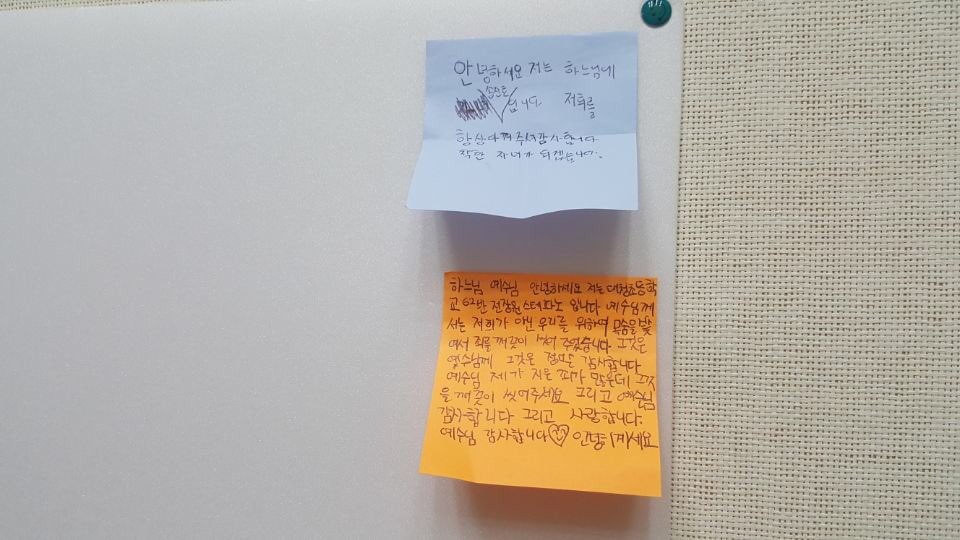 안녕하세요 저는 하느님에
입니다. 저희를
항상 아껴주셔 감사합니다
착한 자녀가 되겠습니다.
하느님 예수님 안녕하세요 저는 대청초등학
교 6-2반 전창원 스테파노 입니다 예수님께
서는 저희가 아닌 우리를 위하여 목숨을 빛
여서 죄를 깨끗이 씻어 주었습니다 그것은
예수님께 그것은 정말로 감사합니다
예수님 제가 지은 죄가 많은데 그것
을 깨끗이 씻어주세요 그리고 예수님
감사합니다 그리고 사랑합니다.
예수님 감사합니다 안녕히계세요